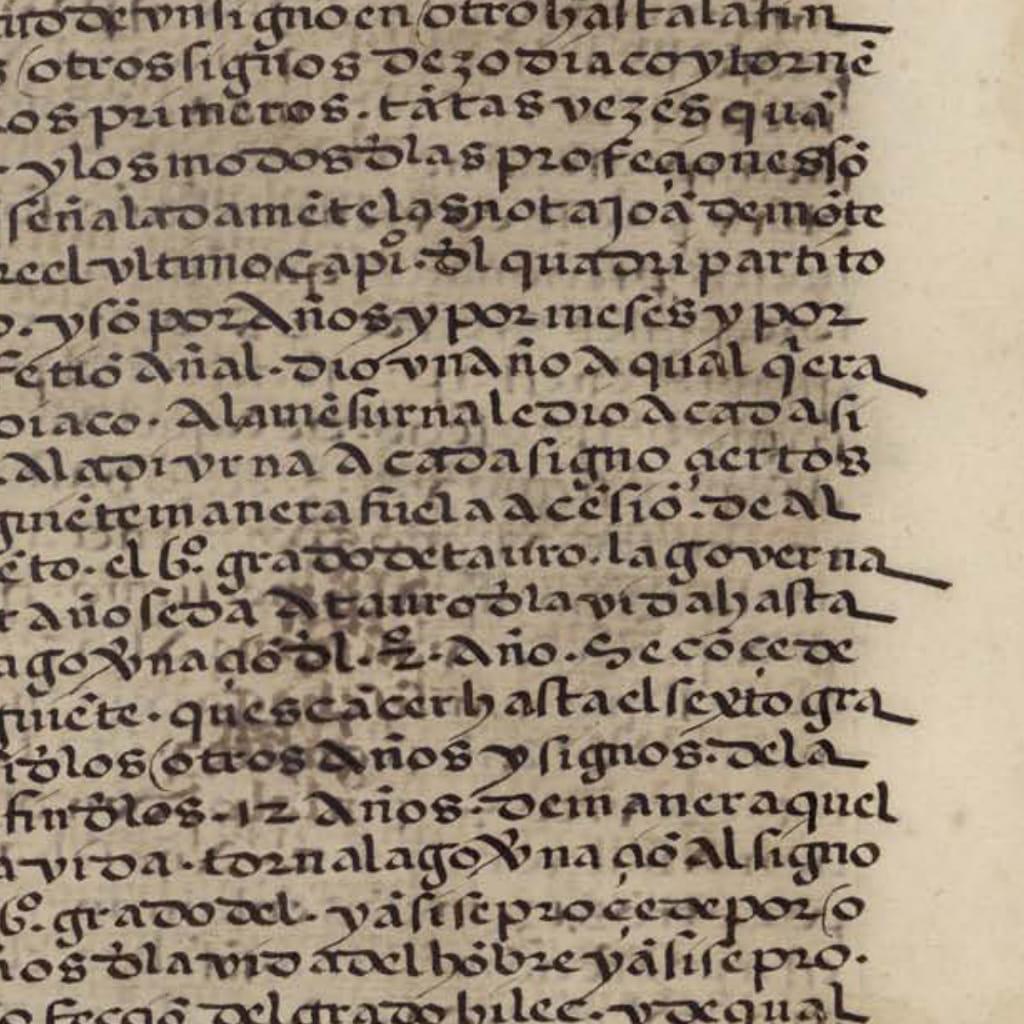 de vn signo en otro hasta la fin
otros signos de zodiaco y tornē
os primeros. tātas vezes quā
y los modos đlas profeçiones sō
señaladamēte las nota joā de mōte
el vltimo capiº. đl quadripartito
. y sō por Años y por meses y por
Añal. dio vn Año A qual qͥera
diaco. A la mēsurna le dio A cada si
A la diurna A cada signo çiertos
manera fue la açēsiō. de Al
ēto. el 6º. grado de tauro. la governa
Año se da A tauro đla vida hasta
đl. 2º. Año. Se cōçede
guiēte. que es cācer hasta el sexto gra
đlos otros Años y signos. de la
fin đlos. 12 Años. de manera quel
vida. torna la al signo
6º. grado del. y āsi se proçede por o
đla vida del hōbre y āsi se pro.
del grado hilec. y de qual